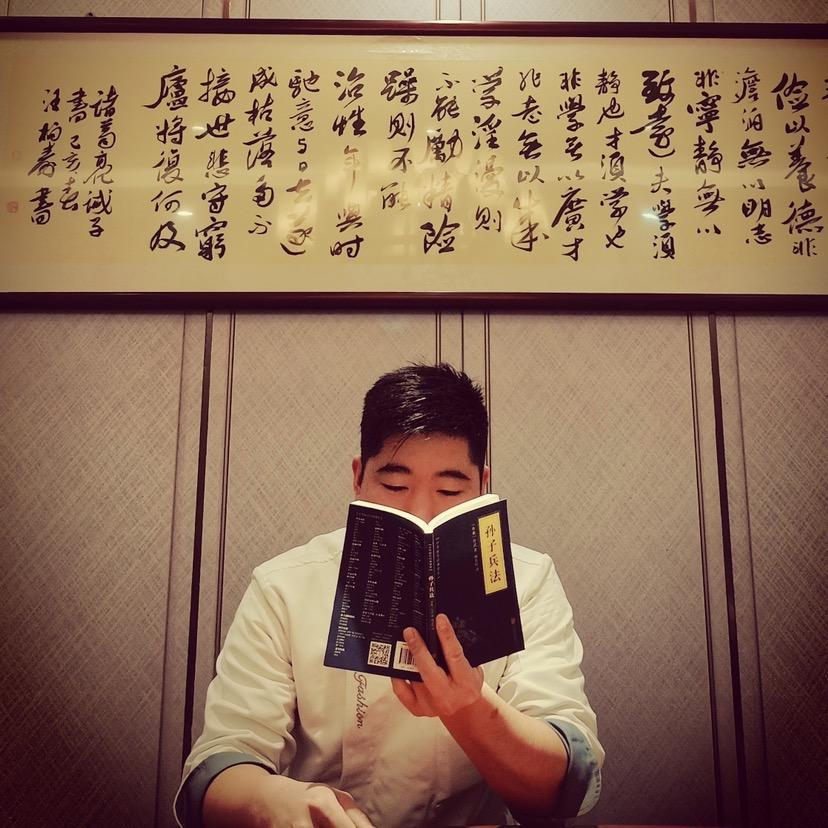 儉以養德非
澹泊無以明志
非寧静無以
致遠夫學須
静也才須學也
非學無以廣才
非志無以成
學淫漫則
不能勵精險
躁則不能
治性年與時
馳意与日去遂
成枯落多不
接世悲守窮
廬將復何及
諸葛亮诫子
書己亥春
汪柏壽書
孙子兵法
孙子兵法
Fashion